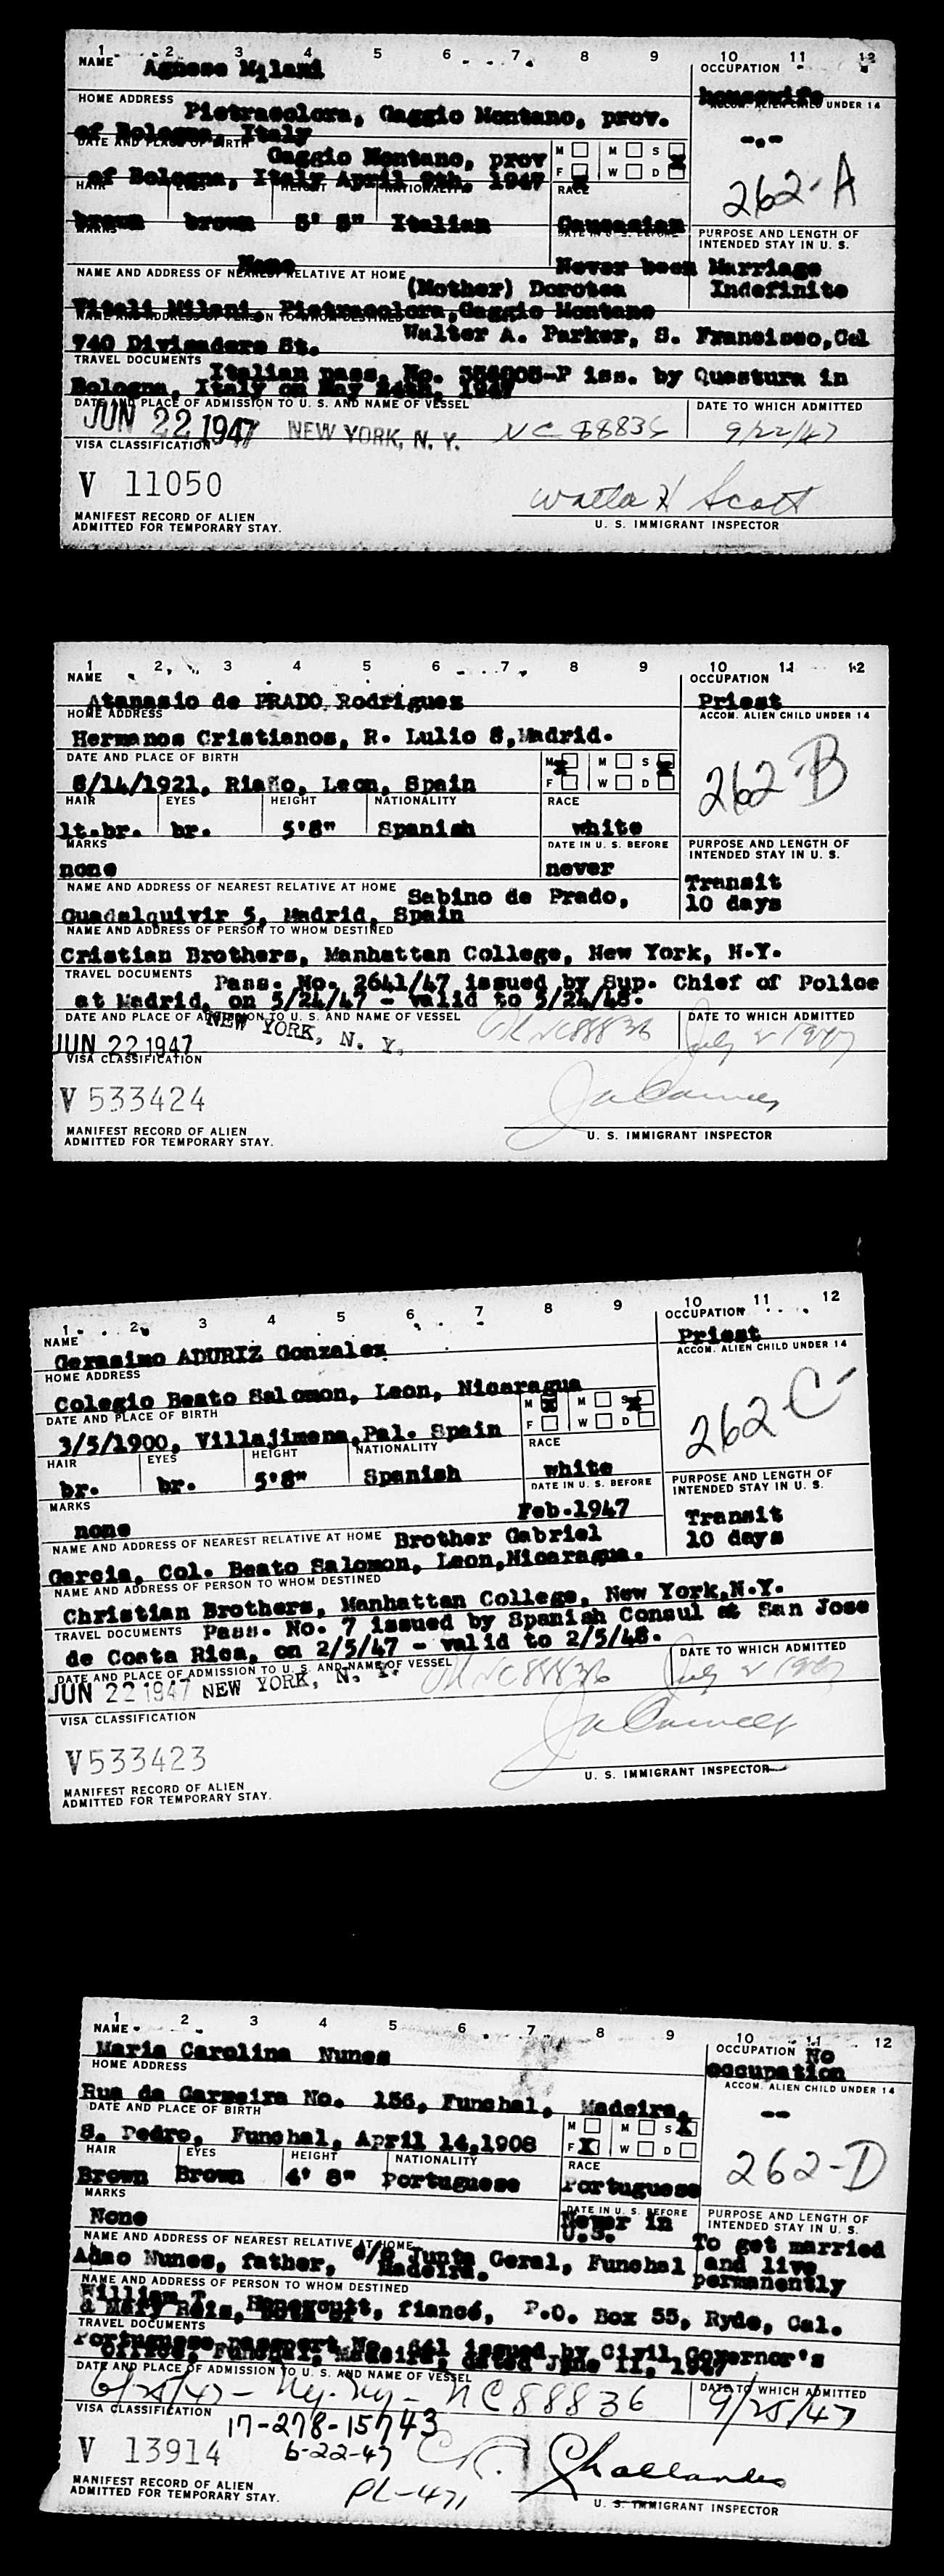 1 2 3 4 5 6 7 8 9 10 11 12
NAME Agnese Milani OCCUPATION housewife
HOME ADDRESS Pietracolora, Gaggio Montano, prov. ACCOM. ALIEN CHILD UNDER 14
of Bologna, Italy -.-
DATE AND PLACE OF BIRTH Gaggio Montano, prov M M S
of Bologna, Italy April 9th, 1947 F W D 262-A
HAIR EYES HEIGHT NATIONALITY RACE
brown brown 5' 5" Italian Caucasian PURPOSE AND LENGTH OF
MARKS DATE IN U. S. BEFORE INTENDED STAY IN U. S.
None Never been Marriage
NAME AND ADDRESS OF NEAREST RELATIVE AT HOME (Mother) Dorotea Indefinite
Vitali Milani, Pietracolora,Gaggio Montano
NAME AND ADDRESS OF PERSON TO WHOM DESTINED Walter A. Parker, S. Francisco,Cal
740 Divisadero St.
TRAVEL DOCUMENTS Italian pass. No. -P iss. by Questura in
Bologna, Italy on May 24th, 1947
DATE AND PLACE OF ADMISSION TO U. S. AND NAME OF VESSEL DATE TO WHICH ADMITTED
JUN 22 1947 NEW YORK, N. Y. NC 88836 9/22/47
VISA CLASSIFICATION
V 11050
Scott
MANIFEST RECORD OF ALIEN
ADMITTED FOR TEMPORARY STAY. U. S. IMMIGRANT INSPECTOR
1 2 3 4 5 6 7 8 9 10 11 12
NAME Atanasio de PRADO Rodriguez OCCUPATION Priest
HOME ADDRESS ACCOM. ALIEN CHILD UNDER 14
Hermanos Cristianos, R. Lulio 8,Madrid.
DATE AND PLACE OF BIRTH M M S
8/14/1921, Riaño, Leon, Spain F W D 262-B
HAIR EYES HEIGHT NATIONALITY RACE
lt.br. br. 5'8" Spanish white
MARKS DATE IN U. S. BEFORE PURPOSE AND LENGTH OF
none never INTENDED STAY IN U. S.
NAME AND ADDRESS OF NEAREST RELATIVE AT HOME Sabino de Prado, Transit
Guadalquivir 5, Madrid, Spain 10 days
NAME AND ADDRESS OF PERSON TO WHOM DESTINED
Cristian Brothers, Manhattan College, New York, N.Y.
TRAVEL DOCUMENTS Pass. No. 2641/47 issued by Sup. Chief of Police
at Madrid, on 5/24/47 - valid to 5/24/48.
DATE AND PLACE OF ADMISSION TO U. S. AND NAME OF VESSEL DATE TO WHICH ADMITTED
JUN 22 1947 NEW YORK, N. Y. NC88836 July 2 1947
VISA CLASSIFICATION
V 533424
MANIFEST RECORD OF ALIEN
ADMITTED FOR TEMPORARY STAY. U. S. IMMIGRANT INSPECTOR
1 2 3 4 5 6 7 8 9 10 11 12
NAME Gerasimo ADURIZ Gonzalez OCCUPATION Priest
HOME ADDRESS ACCOM. ALIEN CHILD UNDER 14
Colegio Beato Salomon, Leon, Nicaragua
DATE AND PLACE OF BIRTH M M S
3/5/1900, Villajimena,Pal. Spain F W D 262 C-
HAIR EYES HEIGHT NATIONALITY RACE
br. br. 5'8" Spanish white
MARKS DATE IN U. S. BEFORE PURPOSE AND LENGTH OF
none Feb.1947 INTENDED STAY IN U. S.
NAME AND ADDRESS OF NEAREST RELATIVE AT HOME Brother Gabriel Transit
Garcia, Col. Beato Salomon, Leon,Nicaragua. 10 days
NAME AND ADDRESS OF PERSON TO WHOM DESTINED
Christian Brothers, Manhattan College, New York,N.Y.
TRAVEL DOCUMENTS Pass. No. 7 issued by Spanish Consul at San Jose
de Costa Rica, on 2/5/47 - valid to 2/5/48.
DATE AND PLACE OF ADMISSION TO U. S. AND NAME OF VESSEL DATE TO WHICH ADMITTED
JUN 22 1947 NEW YORK, N. Y. NC88836 July 2 1947
VISA CLASSIFICATION
V533423
MANIFEST RECORD OF ALIEN
ADMITTED FOR TEMPORARY STAY. U. S. IMMIGRANT INSPECTOR
1 2 3 4 5 6 7 8 9 10 11 12
NAME Maria Carolina Nunes OCCUPATION No
HOME ADDRESS occupation
Rua da Carreira No. 156, Funchal, Madeira. ACCOM. ALIEN CHILD UNDER 14
DATE AND PLACE OF BIRTH M M S --
S. Pedro, Funchal, April 14,1908 F W D
HAIR EYES HEIGHT NATIONALITY RACE 262-D
Brown Brown 4' 8" Portuguese Portuguese
MARKS DATE IN U. S. BEFORE PURPOSE AND LENGTH OF
None Never in U.S. INTENDED STAY IN U. S.
NAME AND ADDRESS OF NEAREST RELATIVE AT HOME To get married
Adao Nunes, father, c/o Junta Geral, Funchal and live
Madeira. permanently
NAME AND ADDRESS OF PERSON TO WHOM DESTINED
William T. Honeycutt, fiancé, P.O. Box 55, Ryde, Cal.
& Mary Reis, both of
TRAVEL DOCUMENTS
Portuguese passport No. 641 issued by Civil Governor's
Office, Funchal, Madeira, dated June 11, 1947
DATE AND PLACE OF ADMISSION TO U. S. AND NAME OF VESSEL DATE TO WHICH ADMITTED
6/25/47 - Ny. Ny - NC88836 9/25/47
VISA CLASSIFICATION 17-278-15743
V 13914 6-22-47
MANIFEST RECORD OF ALIEN
ADMITTED FOR TEMPORARY STAY. PL-471 U. S. IMMIGRANT INSPECTOR